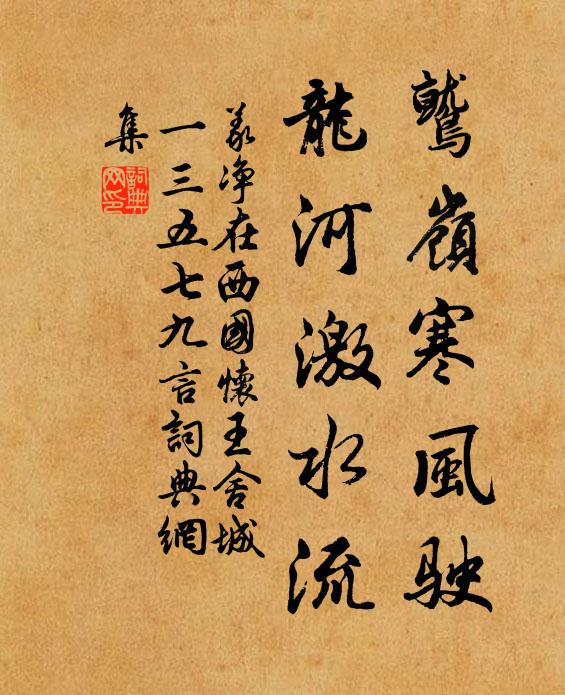 鷲嶺寒風駛
龍河激水流
義淨在西國懷王舍城
一三五七九言詞典網
集
詞典
網印